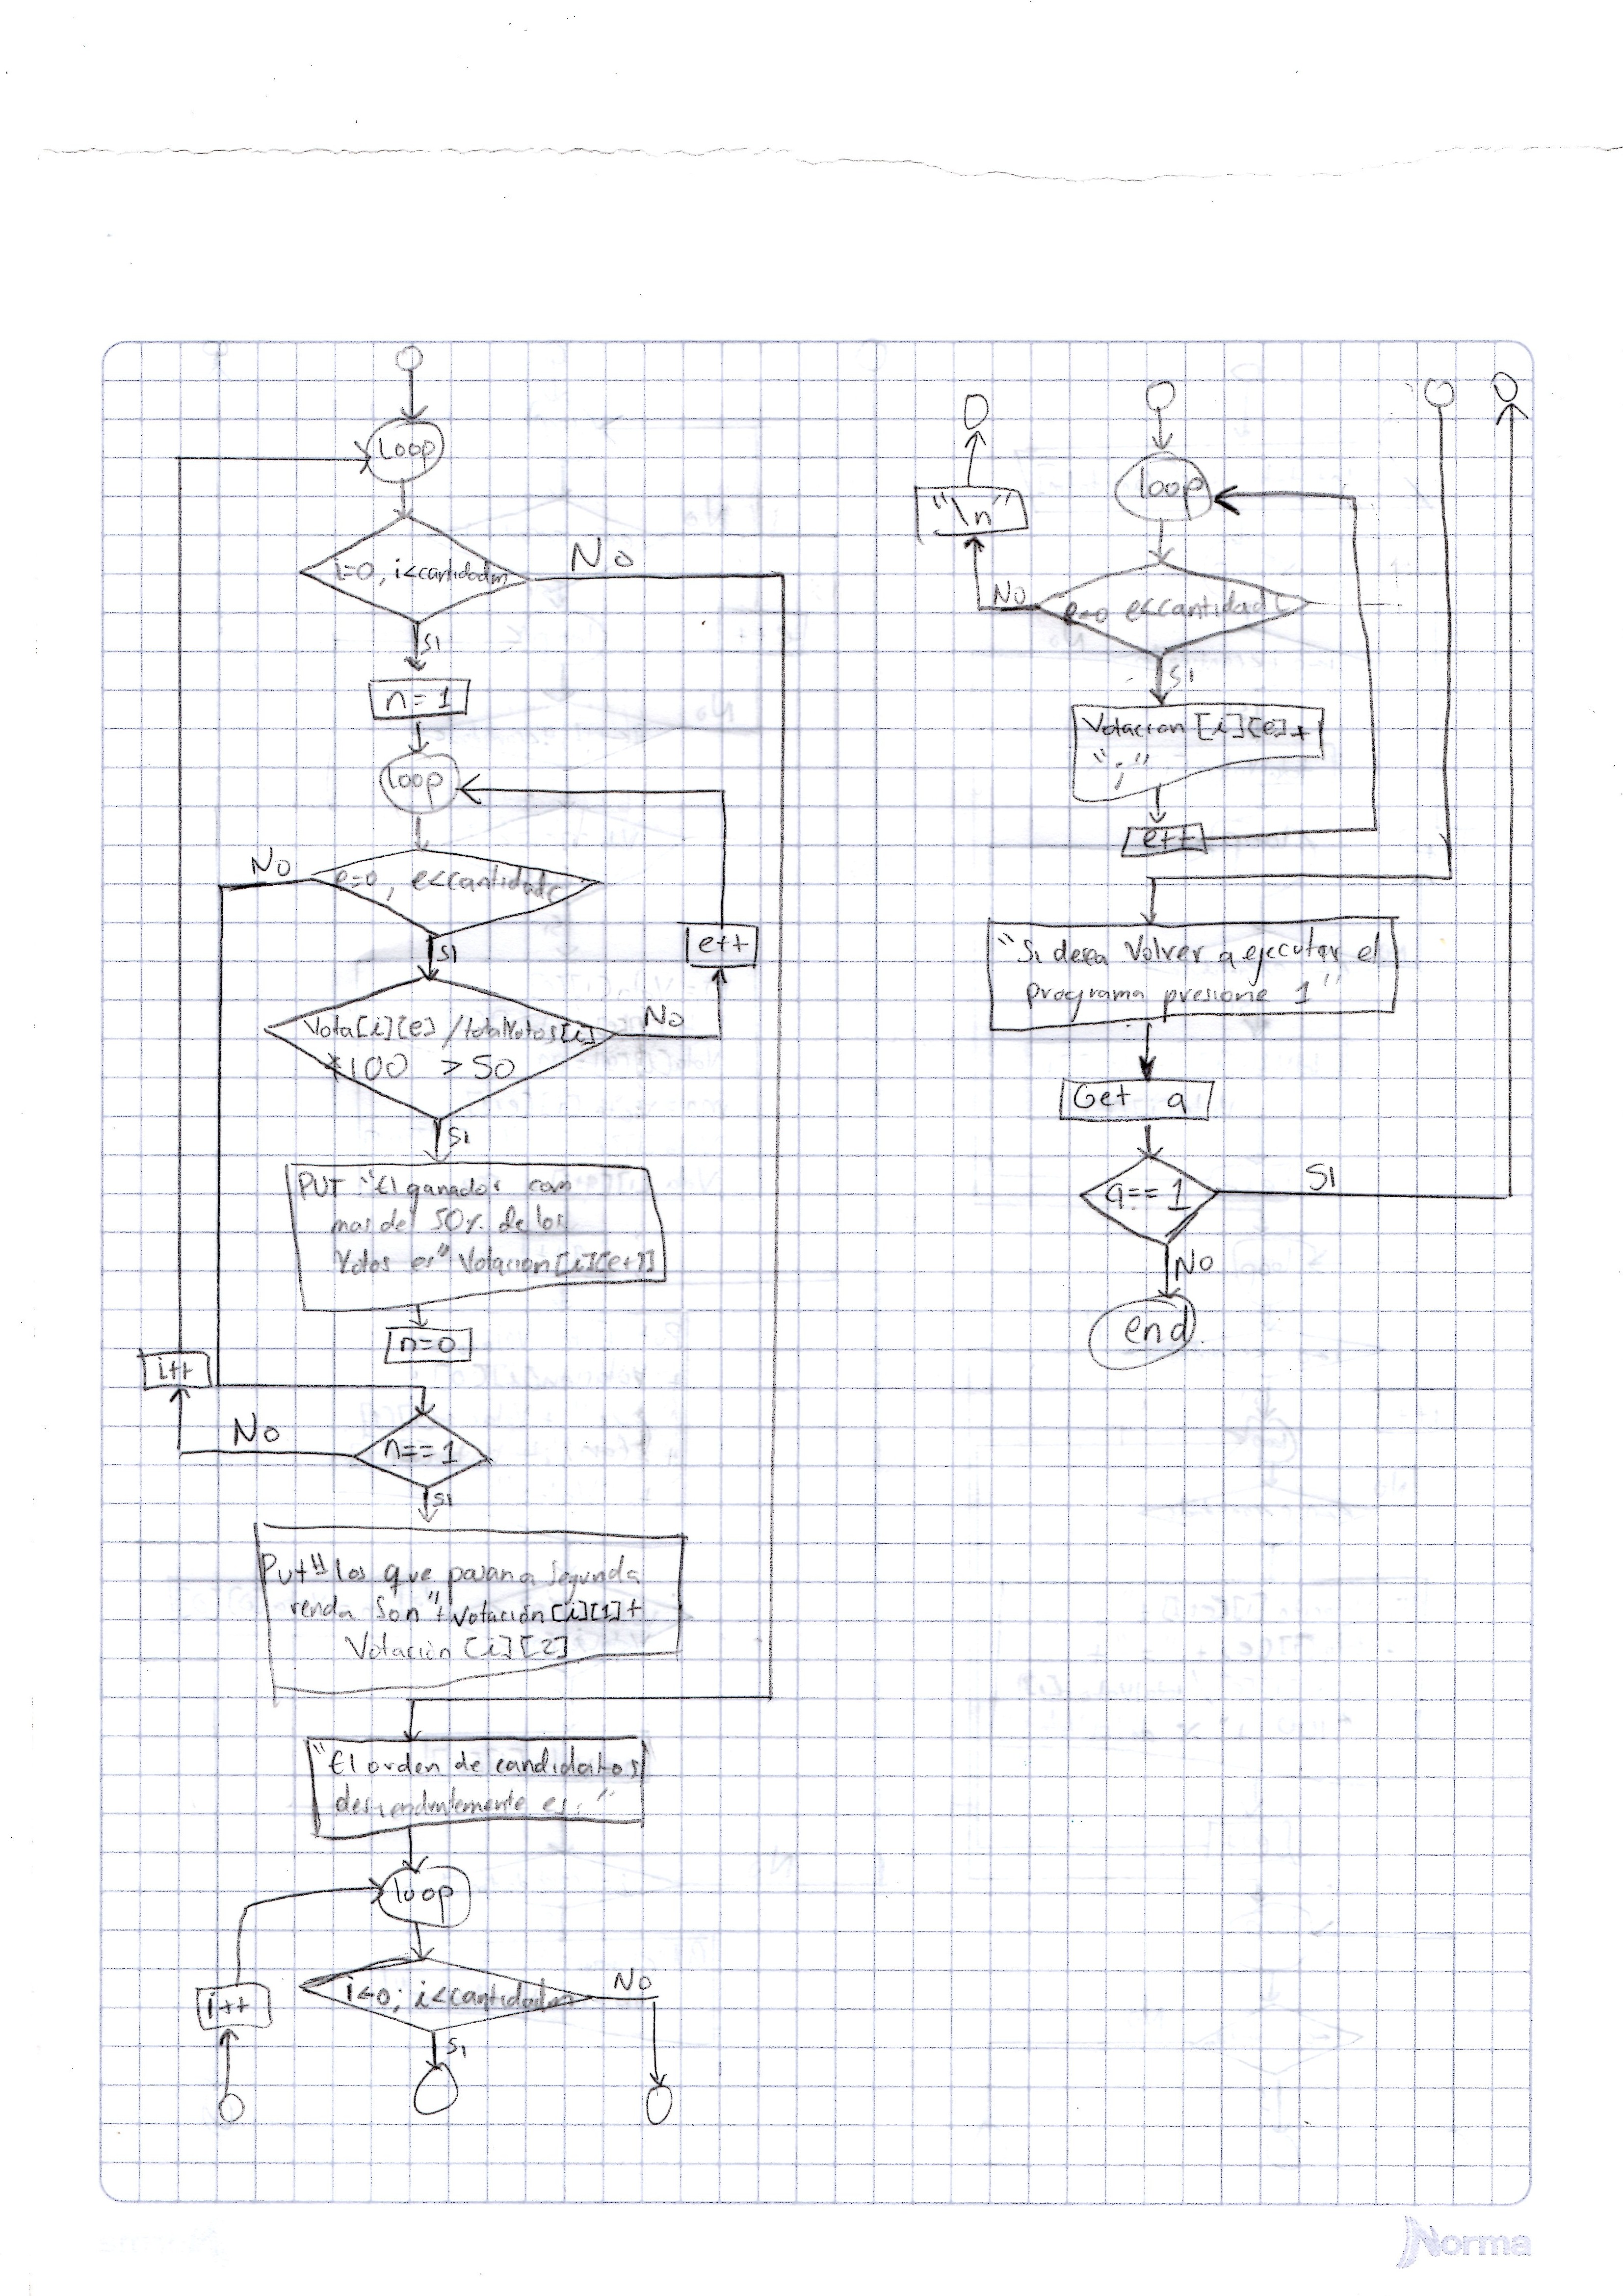 loop
i=0, i<cantidadm
No
SI
n=1
loop
No
e=0, e<cantidadc
SI
e++
Vota[i][e]/totalVotos[i]
*100 >50
No
SI
PUT "El ganador con
mas de 50% de los
Votos es" Votacion[i][e+1]
n=0
i++
No
n==1
SI
Put "los que pasan a segunda
ronda Son"+Votación[i][1]+
Votación[i][2]
"El orden de candidatos
descendentemente es:"
loop
i++
i<0; i<cantidadm
No
SI
"\n"
loop
No
e=0 e<cantidadc
SI
Votacion[i][e]+
";"
e++
"Si desea Volver a ejecutar el
programa presione 1"
Get a
a==1
SI
No
end.
Norma